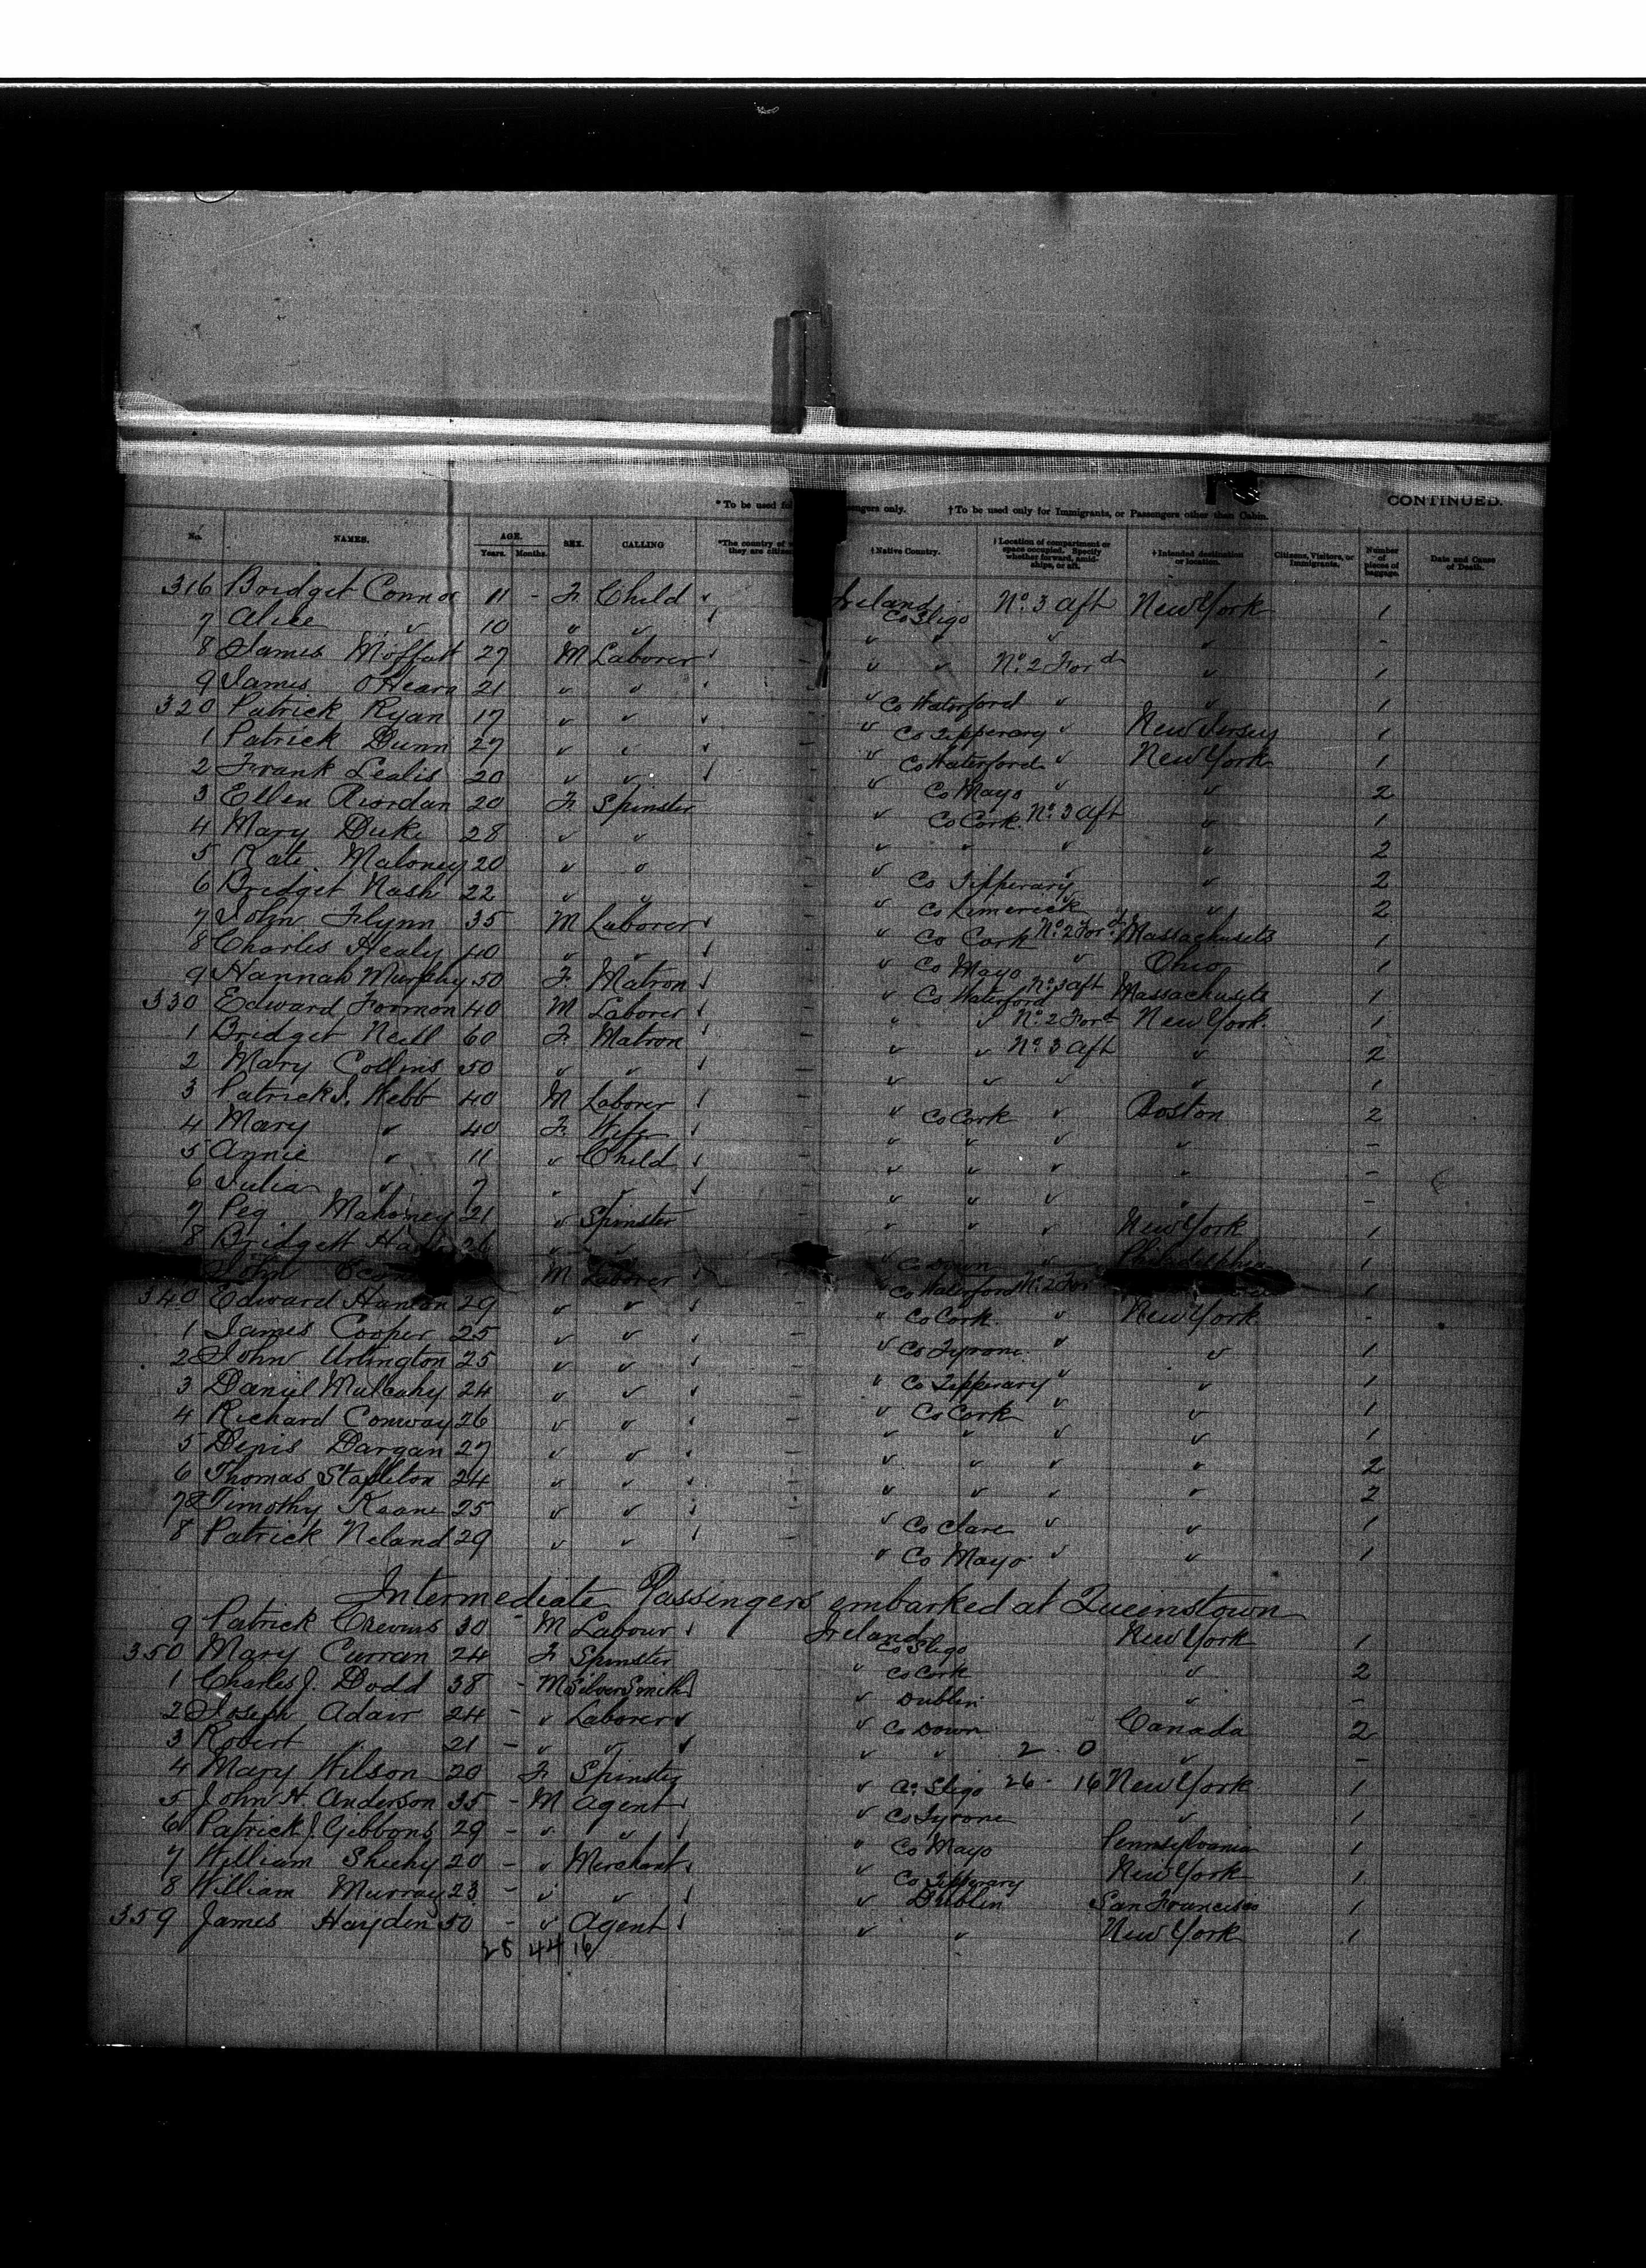 CONTINUED.
*To be used for engers only. †To be used only for Immigrants, or Passengers other than Cabin.
No. NAMES. AGE. Years. Months. SEX. CALLING *The country of they are citizen †Native Country. †Location of compartment or space occupied. Specify whether forward, amidships, or aft. †Intended destination or location. Citizens, Visitors, or Immigrants. Number of pieces of baggage. Date and Cause of Death.
316 Bridget Connor 11 - F. Child Ireland Co Sligo No. 3 Aft New York 1
7 Alice " 10 " " " " " " -
8 James Moffatt 27 M Laborer " " No. 2 Ford " 1
9 James O'Hearn 21 " " " Co Waterford " " 1
320 Patrick Ryan 17 " " " Co Tipperary " New Jersey 1
1 Patrick Dunn 27 " " " Co Waterford " New York 1
2 Frank Lealis 20 " " " Co Mayo " " 2
3 Ellen Riordan 20 F. Spinster " Co Cork No. 3 Aft " 1
4 Mary Duke 28 " " " " " " 2
5 Kate Maloney 20 " " " Co Tipperary " " 2
6 Bridget Nash 22 " " " Co Limerick " " 2
7 John Flynn 35 M Laborer " Co Cork No. 2 Ford Massachusets 1
8 Charles Healy 40 " " " Co Mayo " Ohio 1
9 Hannah Murphy 50 F. Matron " Co Waterford No. 3 aft Massachusets 1
330 Edward Formon 40 M Laborer " " No. 2 Ford New York. 1
1 Bridget Neill 60 F. Matron " " No. 3 Aft " 2
2 Mary Collins 50 " " " " " " 1
3 Patrick J. Webb 40 M Laborer " Co Cork " Boston 2
4 Mary " 40 F. Wife " " " " -
5 Annie " 11 " Child " " " " -
6 Julia " 7 " " " " " " -
7 Peg Mahoney 21 " Spinster " " " New York 1
8 Bridgett 26 " " " Co Down " Philadelphia 1
John M Laborer " Co Waterford No. 2 For 1
340 Edward Hanlon 29 " " " Co Cork " New York -
1 James Cooper 25 " " " Co Tyrone " " 1
2 John Urlington 25 " " " Co Tipperary " " 1
3 Daniel Mulcahy 24 " " " Co Cork " " 1
4 Richard Conway 26 " " " " " " 1
5 Denis Dargan 27 " " " " " " 2
6 Thomas Stapleton 24 " " " " " " 2
7 Timothy Keane 25 " " " Co Clare " " 1
8 Patrick Neland 29 " " " Co Mayo " " 1
Intermediate Passengers embarked at Queenstown
9 Patrick 30 - M Labour Ireland Co Sligo New York 1
350 Mary Curran 24 F Spinster " Co Cork " 2
1 Charles J. Dodd 38 - M Silver Smith " Dublin " -
2 Joseph Adair 24 - " Laborer " Co Down Canada 2
3 Robert " 21 - " " " " 2 0 " -
4 Mary Wilson 20 F. Spinster " Co. Sligo 26 - 16 New York 1
5 John H. Anderson 35 - M Agent " Co Tyrone " 1
6 Patrick J. Gibbons 29 - " " " Co Mayo Pennsylvania 1
7 William Sheehy 20 - " Merchant " Co Tipperary New York 1
8 William Murray 23 - " " " Dublin San Francisco 1
359 James Hayden 50 - " Agent " " New York 1
28 44 16